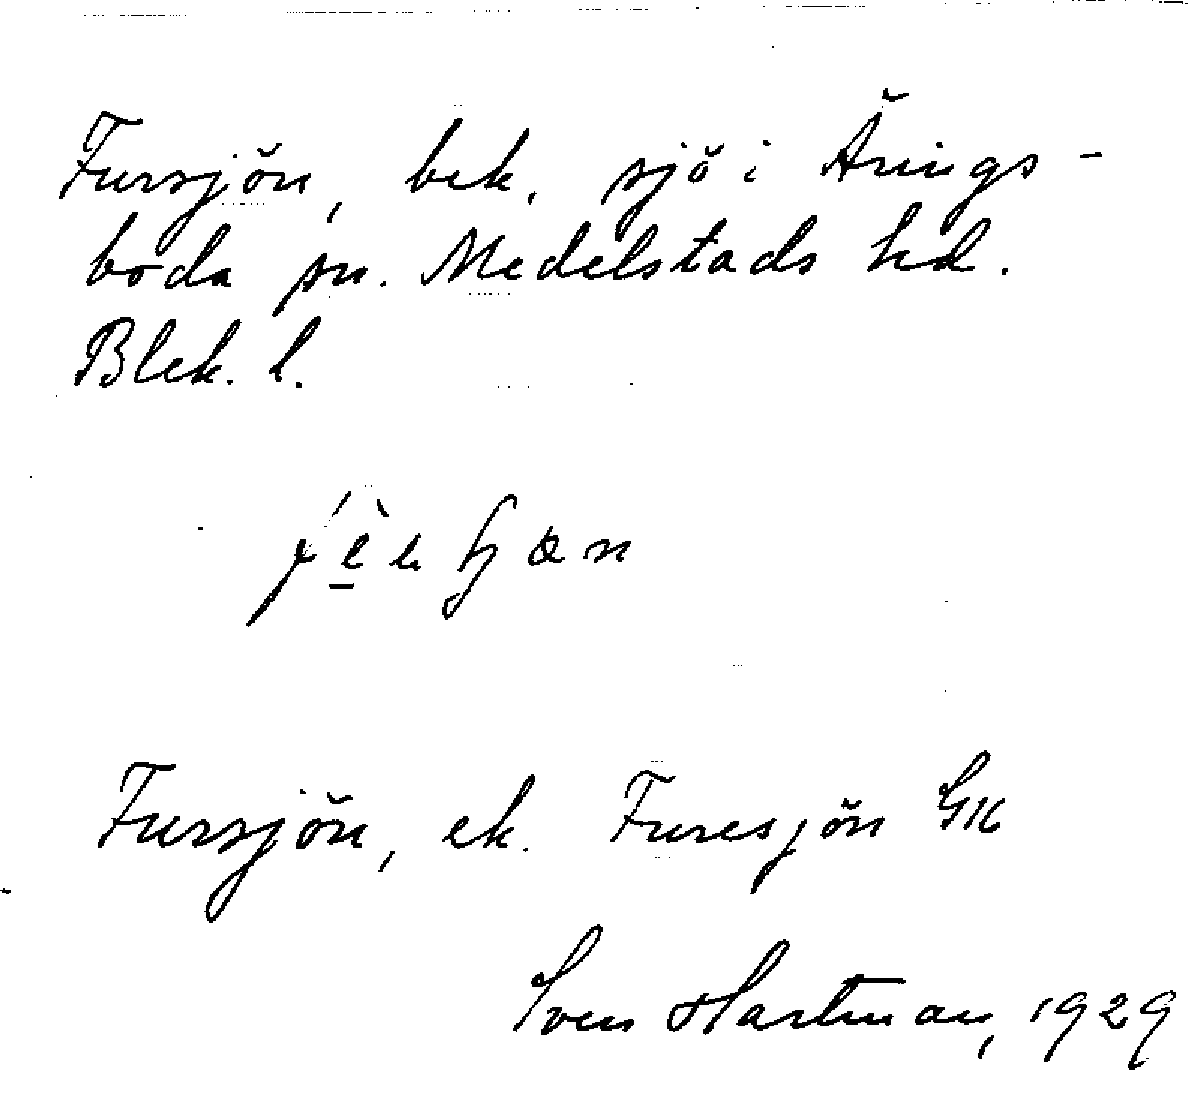 Fursjön, bek. sjö i Ärings-
boda sn. Medelstads hd.
Blek. l.
Fursjön, ek. Furesjön GK
Sven Hartman, 1929